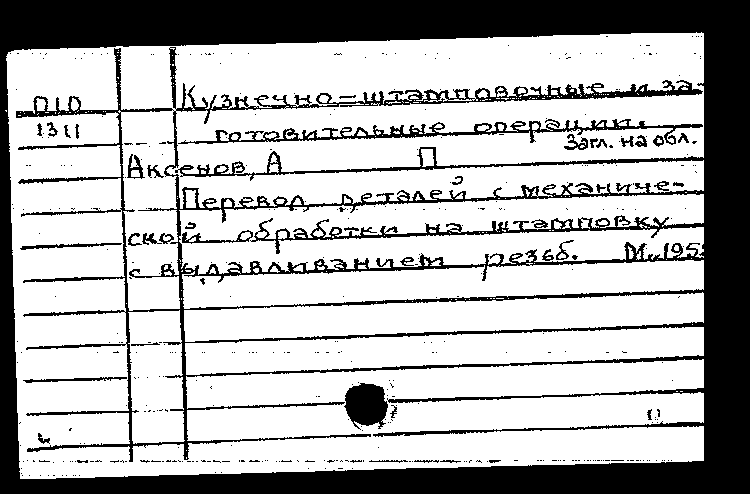 010 Кузнечно-штамповочные и за-
1311 готовительные операции.
Загл. на обл.
Аксенов, А П
Перевод деталей с механиче-
ской обработки на штамповку
с выдавливанием резьб. М., 195